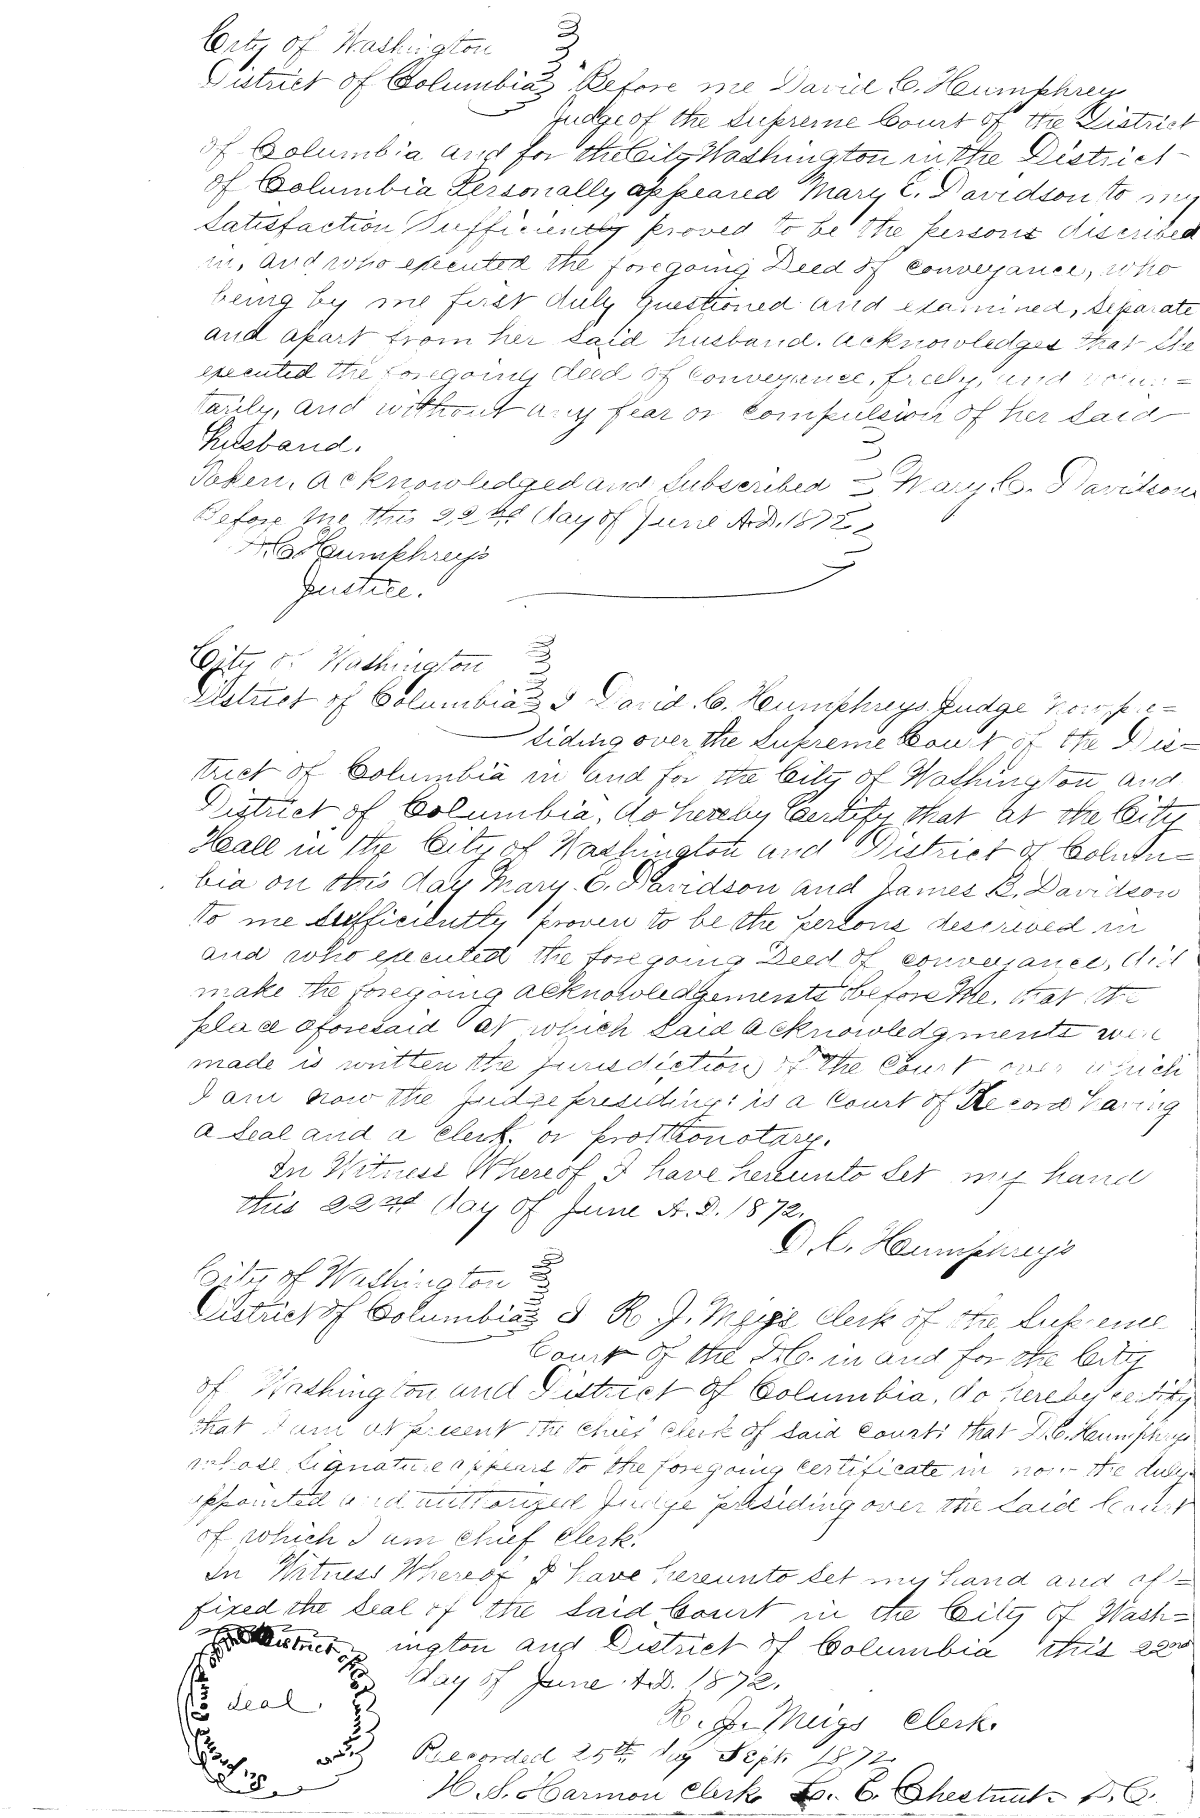 City of Washington
District of Columbia Before me David C. Humphrey
Judge of the Supreme Court of the District
of Columbia and for the City Washington in the District
of Columbia Personally appeared Mary E. Davidson to my
satisfaction Sufficiently proved to be the persons discribed
in, and who executed the foregoing Deed of conveyance, who
being by me first duly questioned and examined, separate
and apart from her said husband. acknowledges that she
executed the foregoing deed of conveyance, freely, and volun=
tarily, and without any fear or compulsion of her said
husband.
Taken, acknowledged and subscribed Mary E. Davidson
Before me this 22nd day of June A.D. 1872
D.C. Humphreys
Justice.
City of Washington
District of Columbia I David C. Humphreys Judge now pre=
siding over the Supreme Court of the Dis=
trict of Columbia in and for the City of Washington and
District of Columbia, do hereby Certify that at the City
Hall in the City of Washington and District of Colum=
bia on this day Mary E. Davidson and James B. Davidson
to me sufficiently proven to be the persons descrived in
and who executed the foregoing Deed of conveyance, did
make the foregoing acknowledgements before me. that the
place aforesaid at which said acknowledgments were
made is written the Jurisdiction of the Court over which
I am now the Judge presiding: is a Court of Record having
a seal and a clerk. or prothonotary.
In Witness Whereof I have hereunto set my hand
this 22nd day of June A.D. 1872.
D.C. Humphreys
City of Washington
District of Columbia I R. J. Meigs Clerk of the Supreme
Court of the D.C. in and for the City
of Washington and District of Columbia, do hereby certify
that I am at present the chief clerk of said court: that D.C. Humphreys
whose signature appears to the foregoing certificate in now the duly
appointed and authorized Judge presiding over the said Court
of which I am chief clerk.
In Witness Whereof I have hereunto set my hand and af=
fixed the seal of the said Court in the City of Wash=
ington and District of Columbia this 22nd
day of June A.D. 1872.
District of
Seal.
R. J. Meigs Clerk.
Recorded 25th day Sept. 1872.
H. S. Harmon Clerk E. Chestnut D.C.